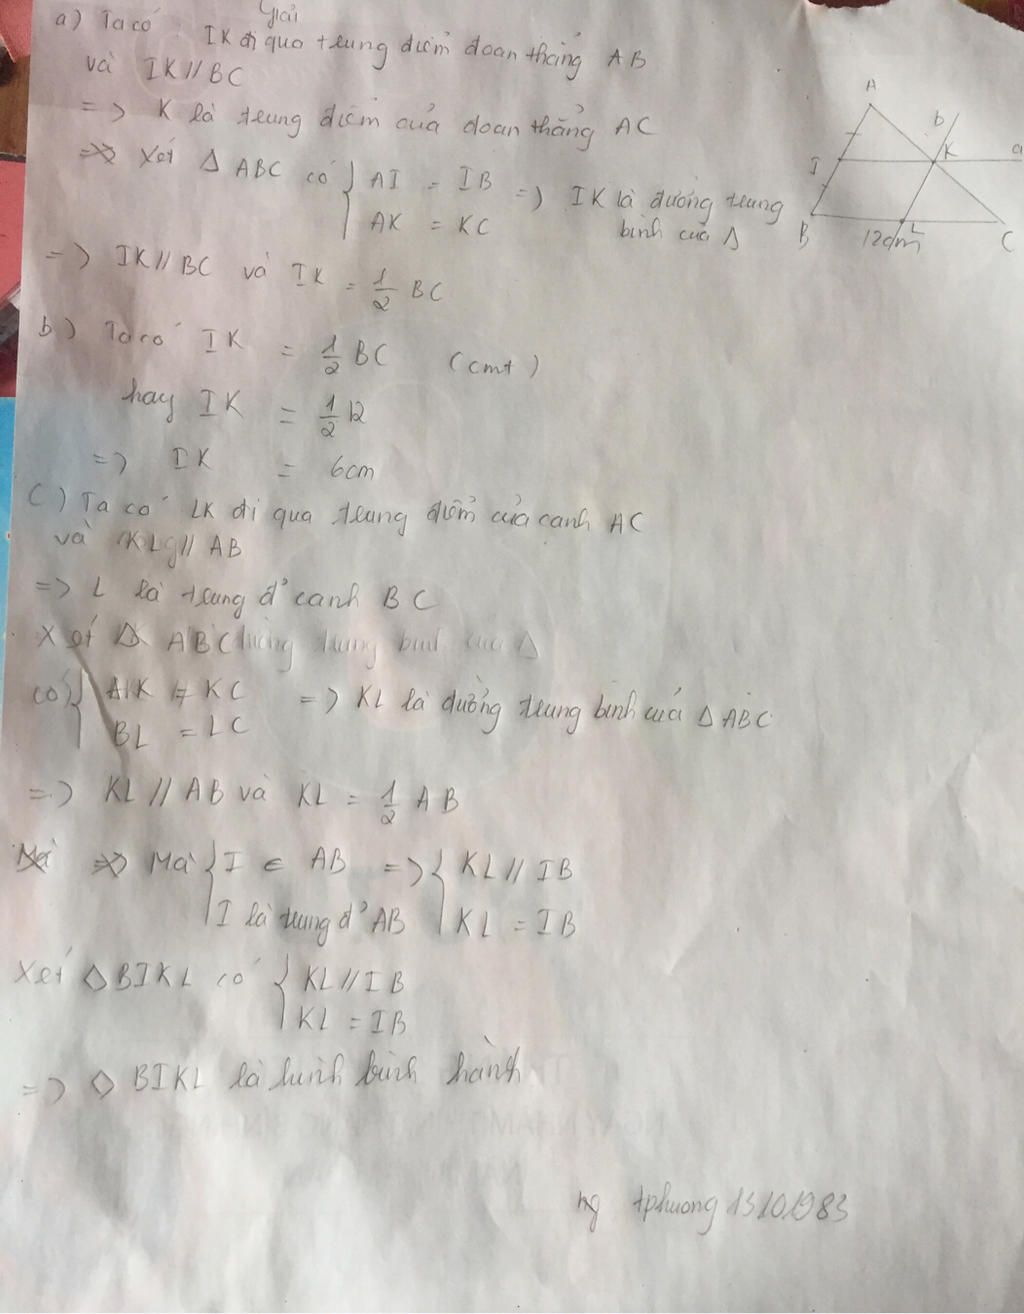 Giải
a) Ta có IK đi qua trung điểm đoạn thẳng AB
và IK // BC
=> K là trung điểm của đoạn thẳng AC
=> Xét Δ ABC có { AI = IB => IK là đường trung
AK = KC bình của Δ
=> IK // BC và IK = 1/2 BC
b) Ta có IK = 1/2 BC (cmt)
hay IK = 1/2 12
=> IK = 6cm
C) Ta có LK đi qua trung điểm của cạnh AC
và KL // AB
=> L là trung đ' cạnh BC
Xét Δ ABC
có { AK = KC => KL là đường trung bình của Δ ABC
BL = LC
=> KL // AB và KL = 1/2 AB
=> Mà { I ∈ AB => { KL // IB
I là trung đ' AB KL = IB
Xét ◇ BIKL có { KL // IB
KL = IB
=> ◇ BIKL là hình bình hành
ng tphuong 13101983
A
b
I
K
a
B
12cm
L
C